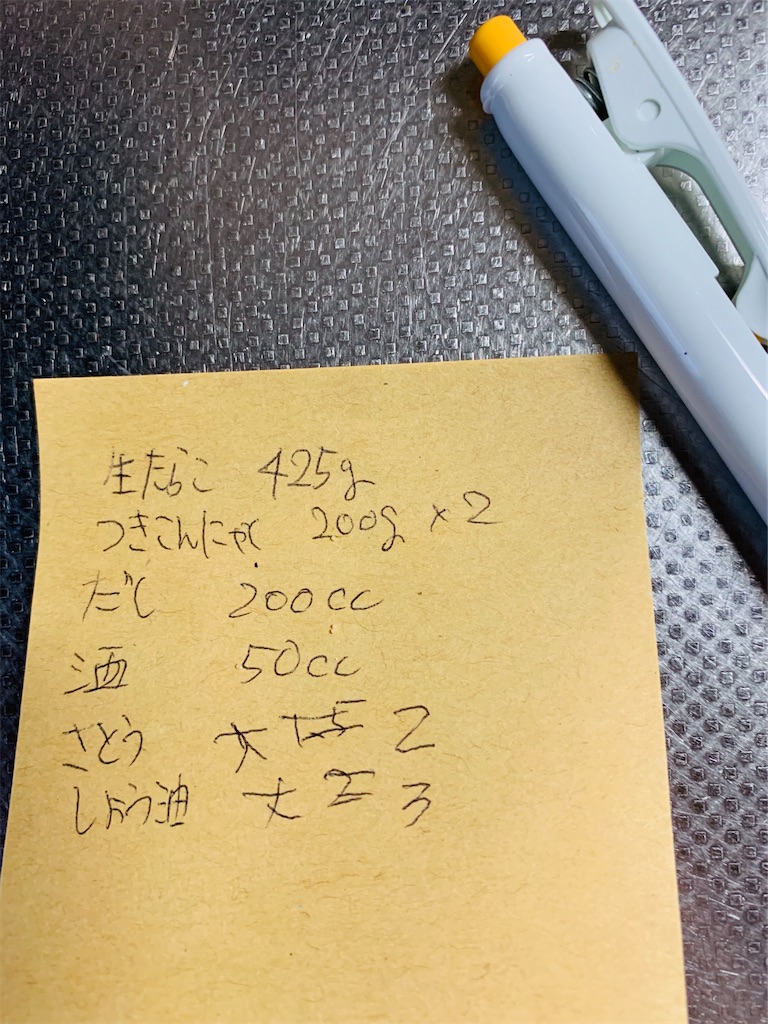 生たらこ 425g
つきこんにゃく 200g ×2
だし 200cc
酒 50cc
さとう 大 1.5 2
しょう油 大 2 3